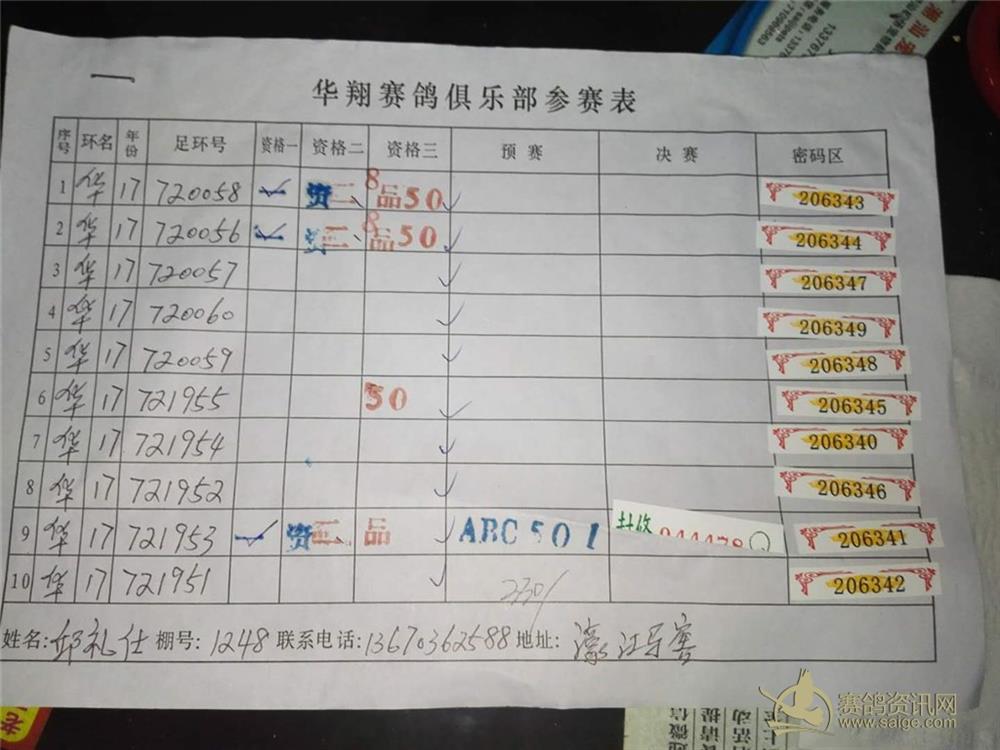 华翔赛鸽俱乐部参赛表
序号 环名 年份 足环号 资格一 资格二 资格三 预赛 决赛 密码区
1 华 17 720058 ✓ 资二、 8品50 206343
2 华 17 720056 ✓ 资二、 8品50 206344
3 华 17 720057 206347
4 华 17 720060 206349
5 华 17 720059 206348
6 华 17 721955 50 206345
7 华 17 721954 206340
8 华 17 721952 206346
9 华 17 721953 ✓ 资二、 品 ABC501 206341
10 华 17 721951 206342
姓名:邱礼仕 棚号: 1248 联系电话:13670362588 地址: 濠江
赛鸽资讯网
www.saige.com